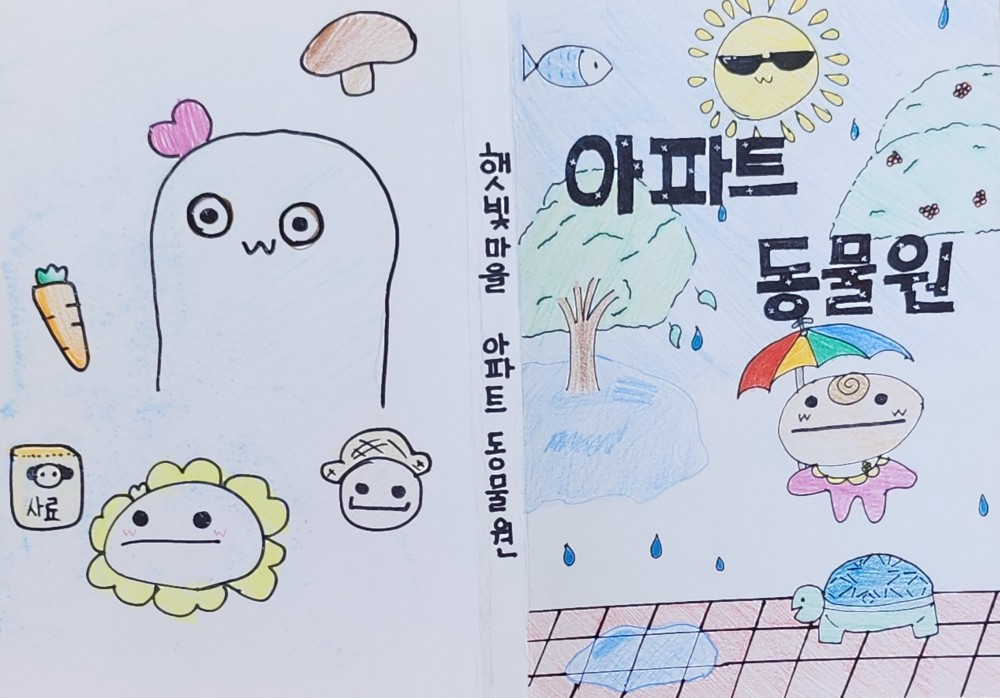 사료
햇빛마을 아파트 동물원
아파트
동물원